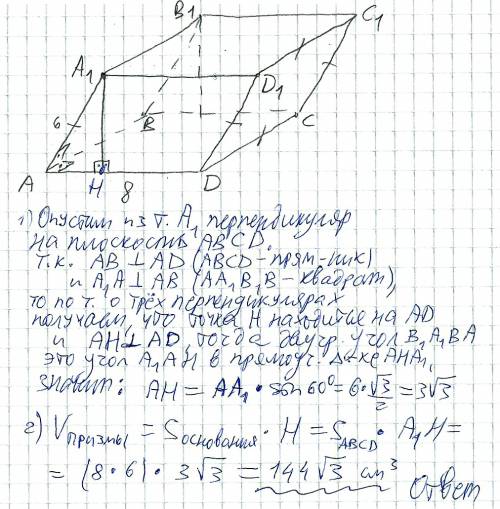 B₁
C₁
A₁
D₁
6
B
C
A
H
8
D
1) Опустим из т. A₁ перпендикуляр
на плоскость ABCD.
Т.к. AB ⊥ AD (ABCD - прям-ник)
и A₁A ⊥ AB (AA₁B₁B - квадрат),
то по т. о трёх перпендикулярах
получаем, что точка H находится на AD
и AH ⊥ AD, тогда двугр. угол B₁A₁BA
это угол A₁AH в прямоуг. Δ-ке AHA₁,
значит: AH = AA₁ · sin 60° = 6 · √3/2 = 3√3
2) Vпризмы = Sоснования · H = S_ABCD · A₁H =
= (8 · 6) · 3√3 = 144√3 см³
Ответ